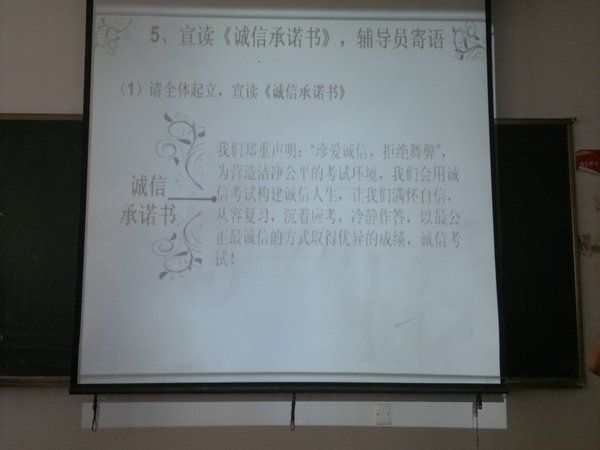 5、宣读《诚信承诺书》，辅导员寄语
（1）请全体起立，宣读《诚信承诺书》
诚信
承诺书
我们郑重声明：“珍爱诚信，拒绝舞弊”，
为营造洁净公平的考试环境，我们会用诚
信考试构建诚信人生，让我们满怀自信，
从容复习，沉着应考，冷静作答，以最公
正最诚信的方式取得优异的成绩，诚信考
试！